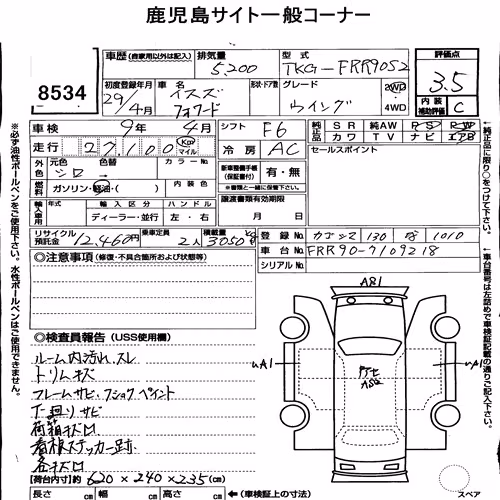 鹿児島サイト一般コーナー
8534
車歴 (自家用以外は記入) 排気量 5,200 型式 TKG-FRR90S2 評価点 3.5
初度登録年月 29年/4月 車名 イスズ フォワード 形状・ドア数 グレード ウイング 2WD・4WD 内装補助評価点 C
車検 9年 4月 シフト F6 純正品 SR 純AW PS PW
走行 27,100 Km マイル 冷房 AC 純正品 カワ TV ナビ エアB
外色 元色 シロ 色替 カラーNo. 新車整備手帳(保証書付) 有・無 セールスポイント
燃料 ガソリン・軽油・( ) 内装色 ※書類と一緒に保管下さい。
輸入車用 年式 輸入区分 ハンドル 譲渡書類有効期限
ディーラー・並行 左・右 月 日
リサイクル預託金 12,460円 乗車定員 2人 積載量 3050 kg 登録 130 1010
車台 FRR90-7109218
シリアルNo.
◎注意事項 (修復・不具合箇所および状態等)
◎検査員報告 (USS使用欄)
ルーム内汚れ、スレ
トリムキズ
フレームサビ、フショクペイント
下廻りサビ
荷箱キズ凹
看板ステッカー跡
各キズ凹
[荷台内寸]約 620×240×235cm
長さ cm 幅 cm 高さ cm ←(車検証上の寸法)
A81
A1
A1
スペア
※必ず油性ボールペンをご使用下さい。水性ボールペンはご使用できません。
←純正品に限り○をつけて下さい。
←車台番号は左詰めで車検証記載の通りご記入下さい。